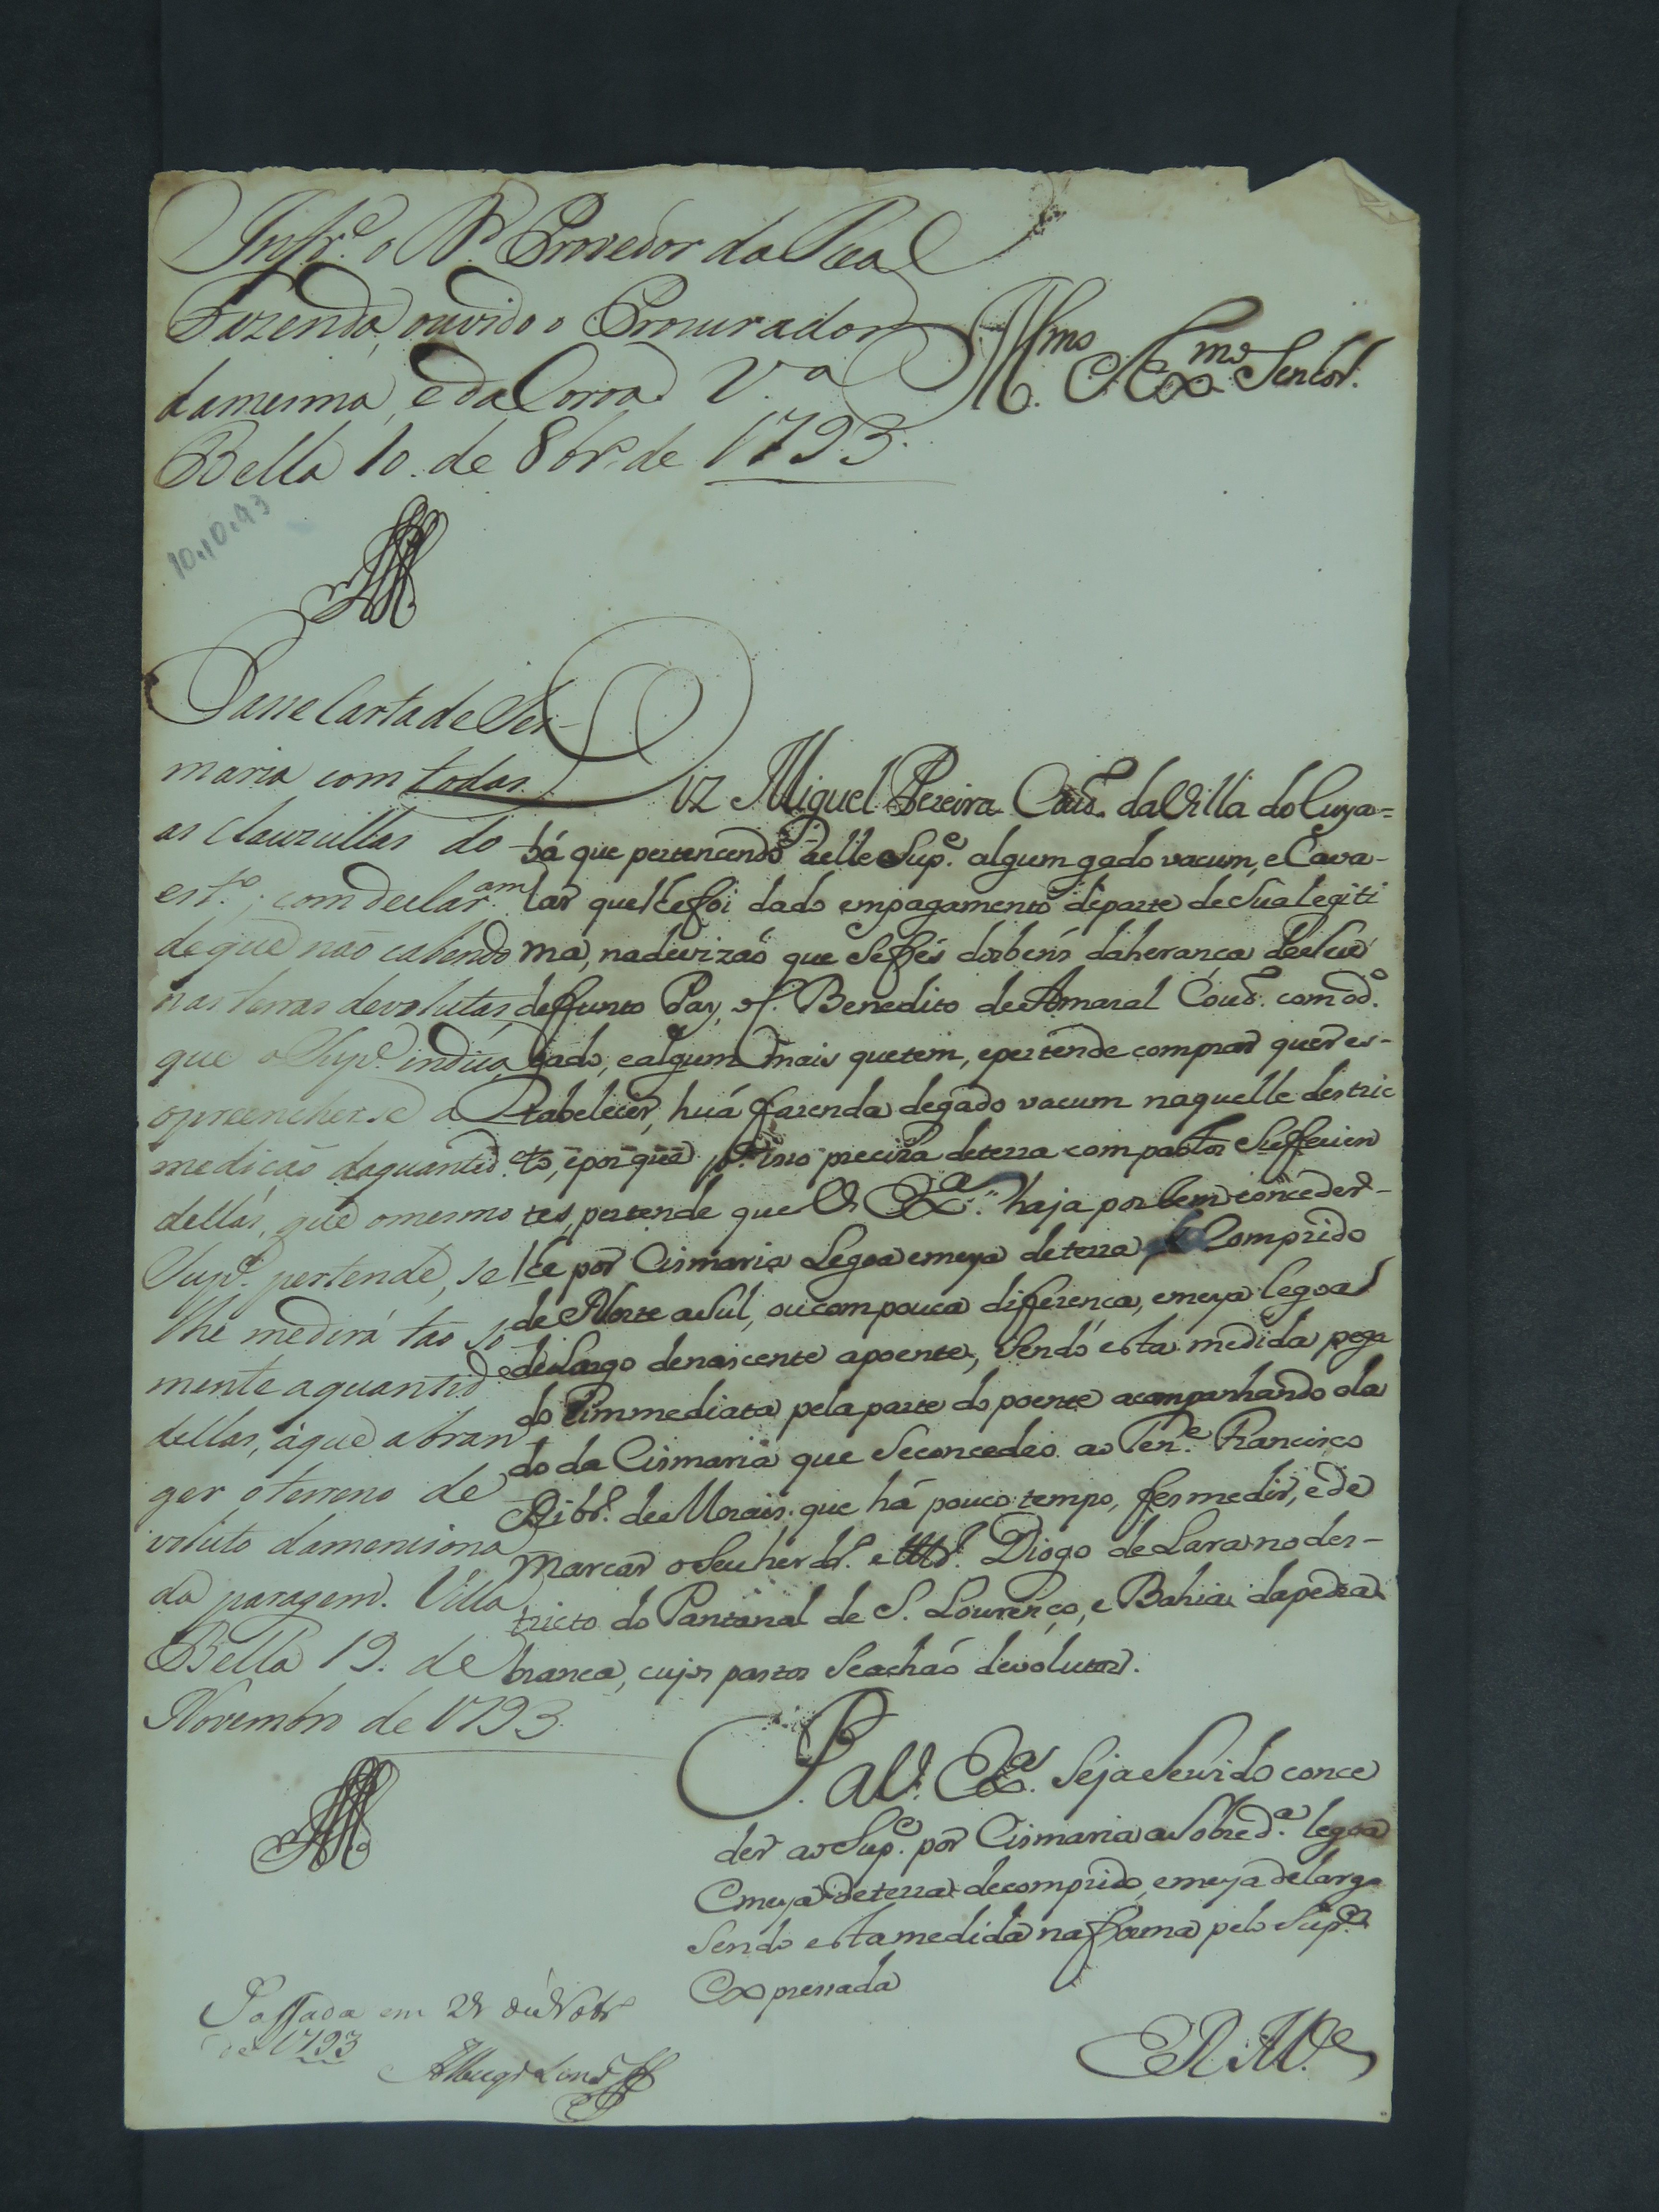 Infr.e o S.r Provedor da Real
Fazenda, ouvido o Procurador
da mesma, e da Coroa. V.a
Bella 10. de 8br.o de 1793.
10.10.93
Ill.mo e Ex.mo Senhor.
Passe Carta de Ses-
maria com todas
as clauzullas do
est.o; com declar.am
de que não cabendo
nas terras devolutas,
que o Sup.e indica,
o preencherse a
medicão da quantid.e
dellas, que o mesmo
Sup.e pertende, se
lhe medirá tão só
mente a quantid.e
dellas, á que abran
ger o terreno de
voluto da menciona
da paragem. Villa
Bella 19. de
Novembro de 1793.
Diz Miguel Pereira Cout.o da Villa do Cuya=
bá que pertencendo aelle Sup.e algum gado vacum, e Cava-
lar que lhe foi dado em pagamento de parte de Sua legiti
ma, na divizaõ que Se fes dos bens da herança de Seu
deffunto Pay, o f. Benedito de Amaral Cout.o com o d.o
gado, e algum mais que tem, e pertende comprar quer es-
tabelecer, huá fazenda de gado vacum naquelle destric
to, e por que p.a isso precisa de terra com pastos Sufficien
tes, pertende que V. Ex.a haja por bem conceder-
lhe por Cismaria Legoa e meya de terra de Comprido
de Norte a Sul, ou com pouca diferença, e meya legoa
de Largo de nascente a poente, Sendo esta medida pega
do immediata pela parte do poente acompanhando o la
do da Cismaria que Se concedeo ao Ten.e Francisco
Ribr.o de Morais que há pouco tempo, fes medir, e de
marcar o Seu herdr.o Diogo de Lara no des-
tricto do Pantanal de S. Lourenço, e Bahia da pedra
branca, cujos pastos Se acháo devolutos.
P. a V. Ex.a Seja Servido conce
der ao Sup.e por Cismaria a Sobred.a legoa
e meya de terra de comprido, e meya de largo
Sendo esta medida na forma pelo Sup.e
Expressada
E. R. M.ce
Passada em 21 de Novbr.o
de 1793